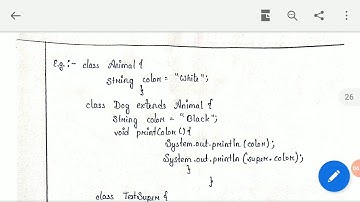 Eg:- class Animal {
String color = "White";
}
class Dog extends Animal {
String color = "Black";
void printColor() {
System.out.println(color);
System.out.println(super.color);
}
}
class TestSuper {
26